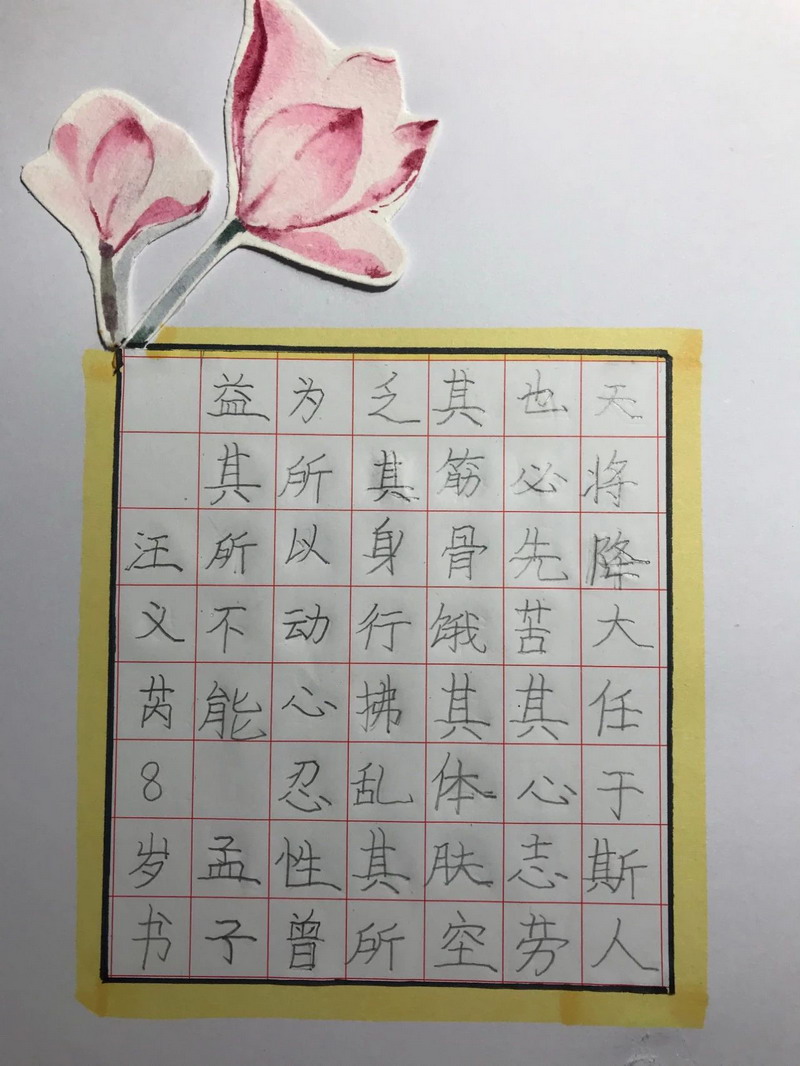 天将降大任于斯人
也必先苦其心志劳
其筋骨饿其体肤空
乏其身行拂乱其所
为所以动心忍性曾
益其所不能 孟子
汪义芮8岁书